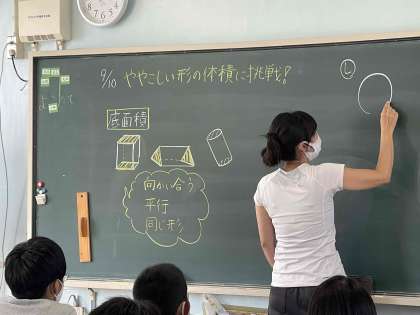 9/10 ややこしい形の体積に挑戦!
し
底面積
向かい合う
平行
同じ形